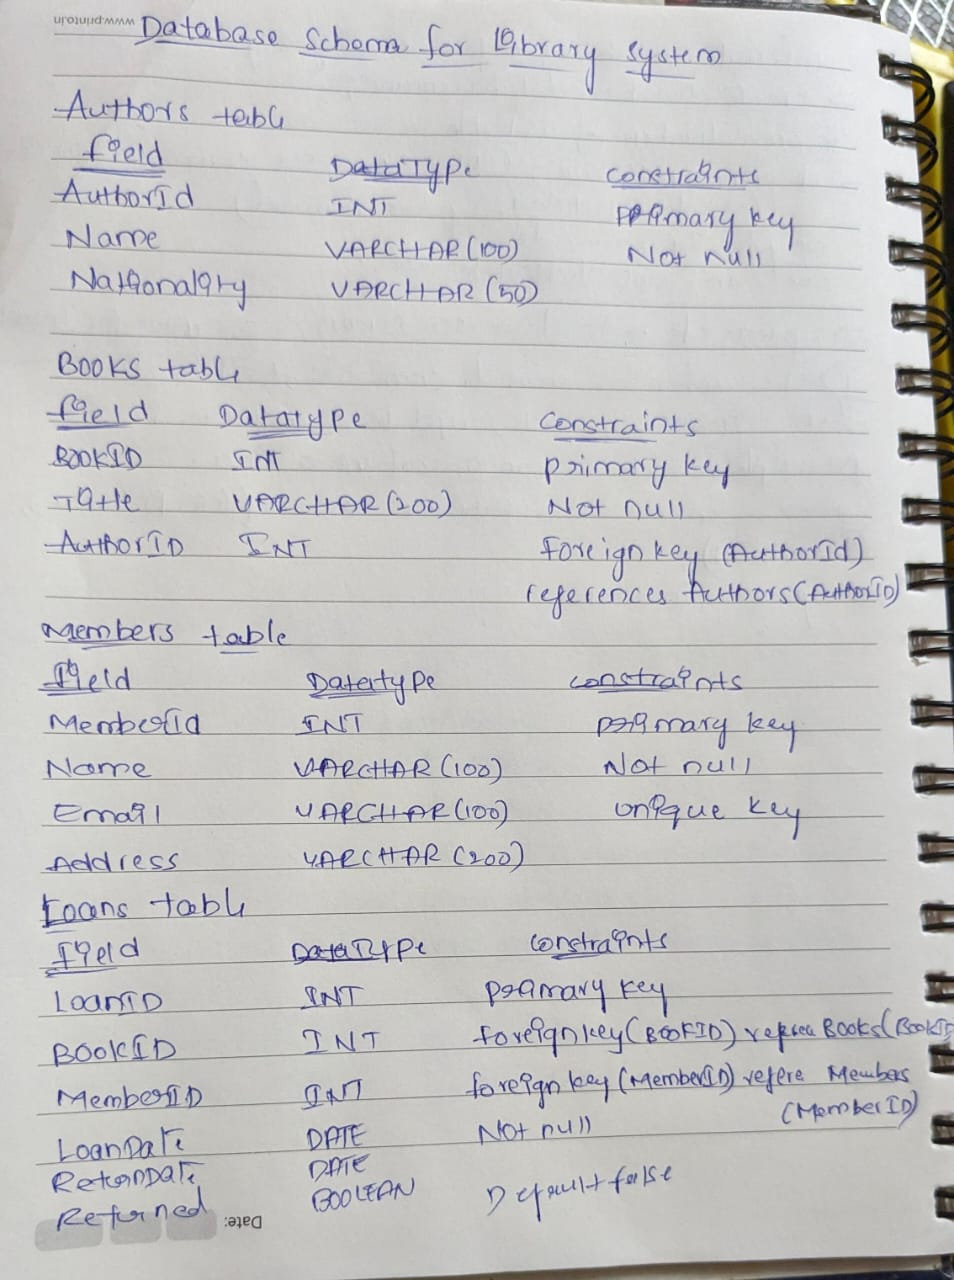 www.printon
Database Schema for Library system
Authors table
field DataType constraints
AuthorId INT primary key
Name VARCHAR(100) Not null
Nationality VARCHAR(50)
Books table
field Datatype Constraints
BOOKID INT primary key
Title VARCHAR(200) Not null
AuthorID INT foreign key (AuthorId)
references Authors(AuthorID)
Members table
field Datatype constraints
MemberId INT primary key
Name VARCHAR(100) Not null
Email VARCHAR(100) unique key
Address VARCHAR(200)
Loans table
Field DataType constraints
LoanID INT primary key
BOOKID INT foreign key(BOOKID) Books(BookID
MemberID INT foreign key (MemberID) refere Members
(MemberID)
LoanDate DATE Not null
ReturnDate DATE
Returned BOOLEAN Default false
Date: